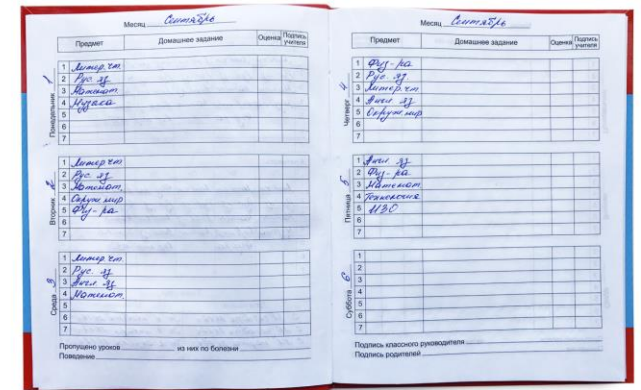 Месяц Сентябрь
Предмет Домашнее задание Оценка Подпись учителя
Понедельник 1
1 Литер.чт.
2 Рус. яз
3 Математ.
4 Музыка
5
6
7
Вторник 2
1 Литер.чт.
2 Рус. яз
3 Математ.
4 Окруж.мир
5 Физ-ра
6
7
Среда 3
1 Литер.чт.
2 Рус. яз
3 Англ. яз
4 Математ.
5
6
7
Пропущено уроков из них по болезни
Поведение
Месяц Сентябрь
Предмет Домашнее задание Оценка Подпись учителя
Четверг 4
1 Физ-ра
2 Рус. яз
3 Литер.чт.
4 Англ. яз
5 Окруж.мир
6
7
Пятница 5
1 Англ. яз
2 Физ-ра
3 Математ.
4 Технология
5 ИЗО
6
7
Суббота 6
1
2
3
4
5
6
7
Подпись классного руководителя
Подпись родителей